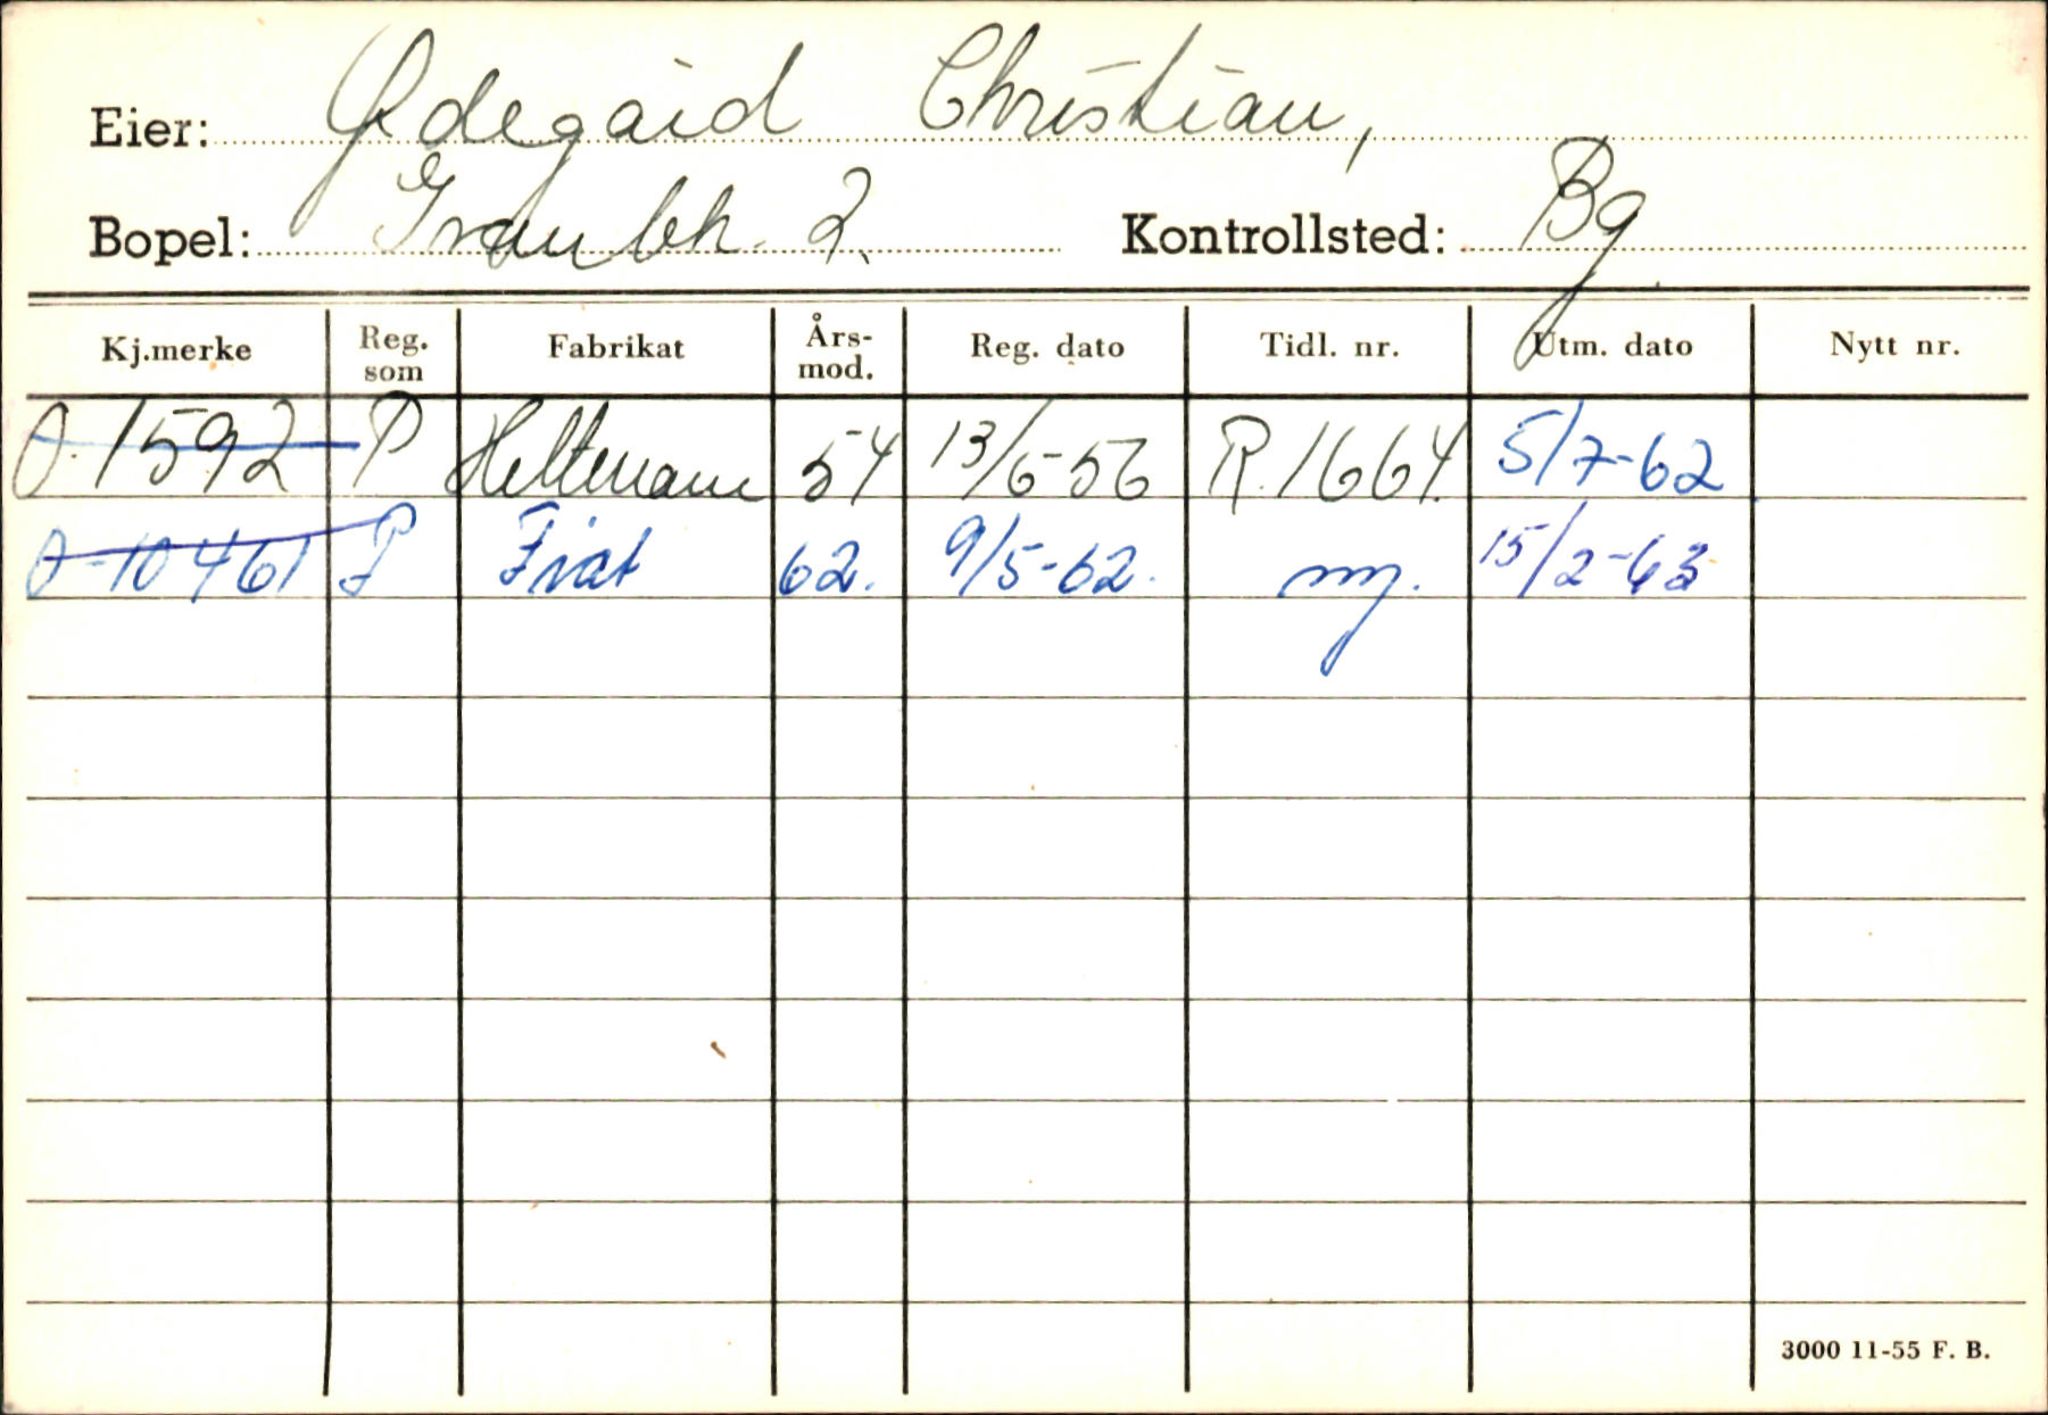 Eier: Ødegård Christian,
Bopel: Graubk. 2. Kontrollsted: Bg
Kj.merke Reg. som Fabrikat Års- mod. Reg. dato Tidl. nr. Utm. dato Nytt nr.
O-1592 P 54 13/6-56 R.1664. 5/7-62
O-10461 P Fiat 62. 9/5-62. ny. 15/2-63
3000 11-55 F. B.